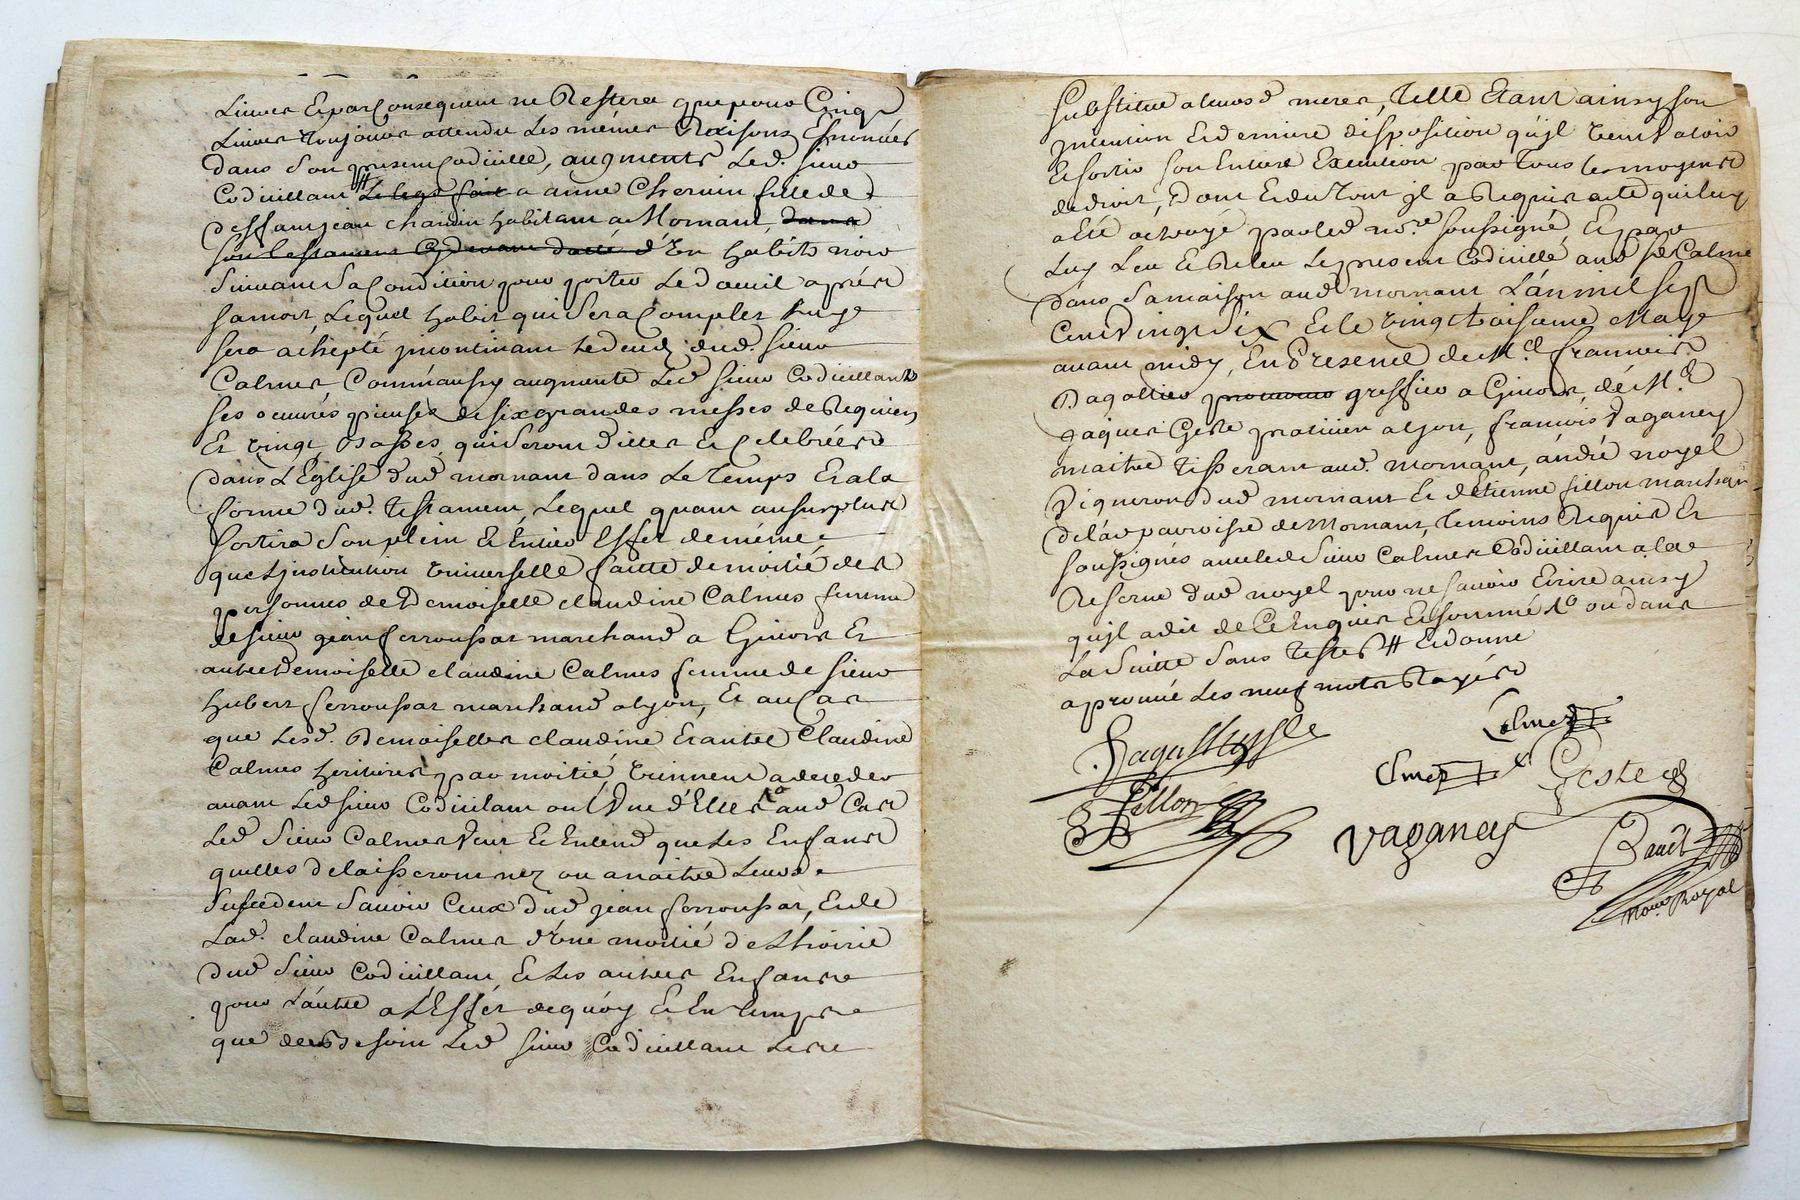 Livres Et par Consequent ne Restera que pour Cinq
Livres toujours attendu Les mémes Raisons Enoncées
dans Son present Codicille, augmente Led. Sieur
Codicillant # Le legs fait a anne Chermin fille de
deffunt jean chardin habitant a Mornant, dans
son testament Cydevant datté d'Un habits noir
Suivant Sa Condition pour porter Le deuil aprés
Sa mort, Lequel habit qui Sera Complet
sera achepté jncontinant Le deced dud. Sieur
Calmes Comm'aussy augmente Led Sieur Codicillant
ses oeuvres pieuses de six grandes messes de Requiem
Et vingt basses, qui Seront dittes Et Celebrées
dans L'Eglise dud mornant dans Le Temps Et a la
forme dud. Testament, Lequel quant au surplus
Sortira Son plein Et Entier Effet de méme
que L'jnstitution Universelle faitte de moitié des
personnes de Demoiselle claudine Calmes femme
de sieur jean ferroussat marchand a Givors Et
autre Demoiselle claudine Calmes femme de Sieur
hubert ferroussat marchand a lyon, Et au Cas
que Lesd. Demoiselles claudine Et autre Claudine
Calmes heritieres par moitié, vinnent a deceder
avant Led Sieur Codicilant ou L'Une d'Elles aud Cas
Led Sieur Calmes Veut Et Entend que Les Enfans
quelles delaisseront nez ou a naitre Leurs
Succedent Savoir Ceux dud jean ferroussat, Et de
Lad. claudine Calmes d'Une moitié de L'hoirie
dud Sieur Codicillant Et Les autres Enfans
pour L'autre a L'Effét de quoy Et En temps
que de besoin Led Sieur Codicillant Les
Substitue a leurs d meres, Telle Etant ainsy son
jntention Et derniere disposition qu'jl veut valoir
Et sortir Son Entiere Execution par tous les moyens
de droit, Dont Et du tout jl a Requis acte qui luy
a Eté octroyé par led no.re Soussigné, Et par
Luy Leu Et Releu Le present Codicille aud Sr Calme
dans Sa maison aud mornant L'an mil Sept
Cent Vingt Six Et le vingt troisieme May
avant midy, En Presence de M.e francois
Bagottier procureur greffier a Givors, de M.e
jaques Geste praticien a lyon, francois Vaganey
maitre Tisserant aud. mornant, andré noyel
Vigneron dud mornant Et d'Etienne fillon marchand
de lad parroisse de Mornant, Temoins Requis Et
soussignés avec led Sieur Calmes Codicillant a la
Reserve dud noyel pour ne savoir Ecrire ainsy
qu'jl a dit de Ce Enquis Et sommé ou dans
La Suitte Sans Tester # Et donne
aprouvé Les neuf mots Rayés
Calmez
Calmez
Geste
fillon
vaganey
Not. Royal